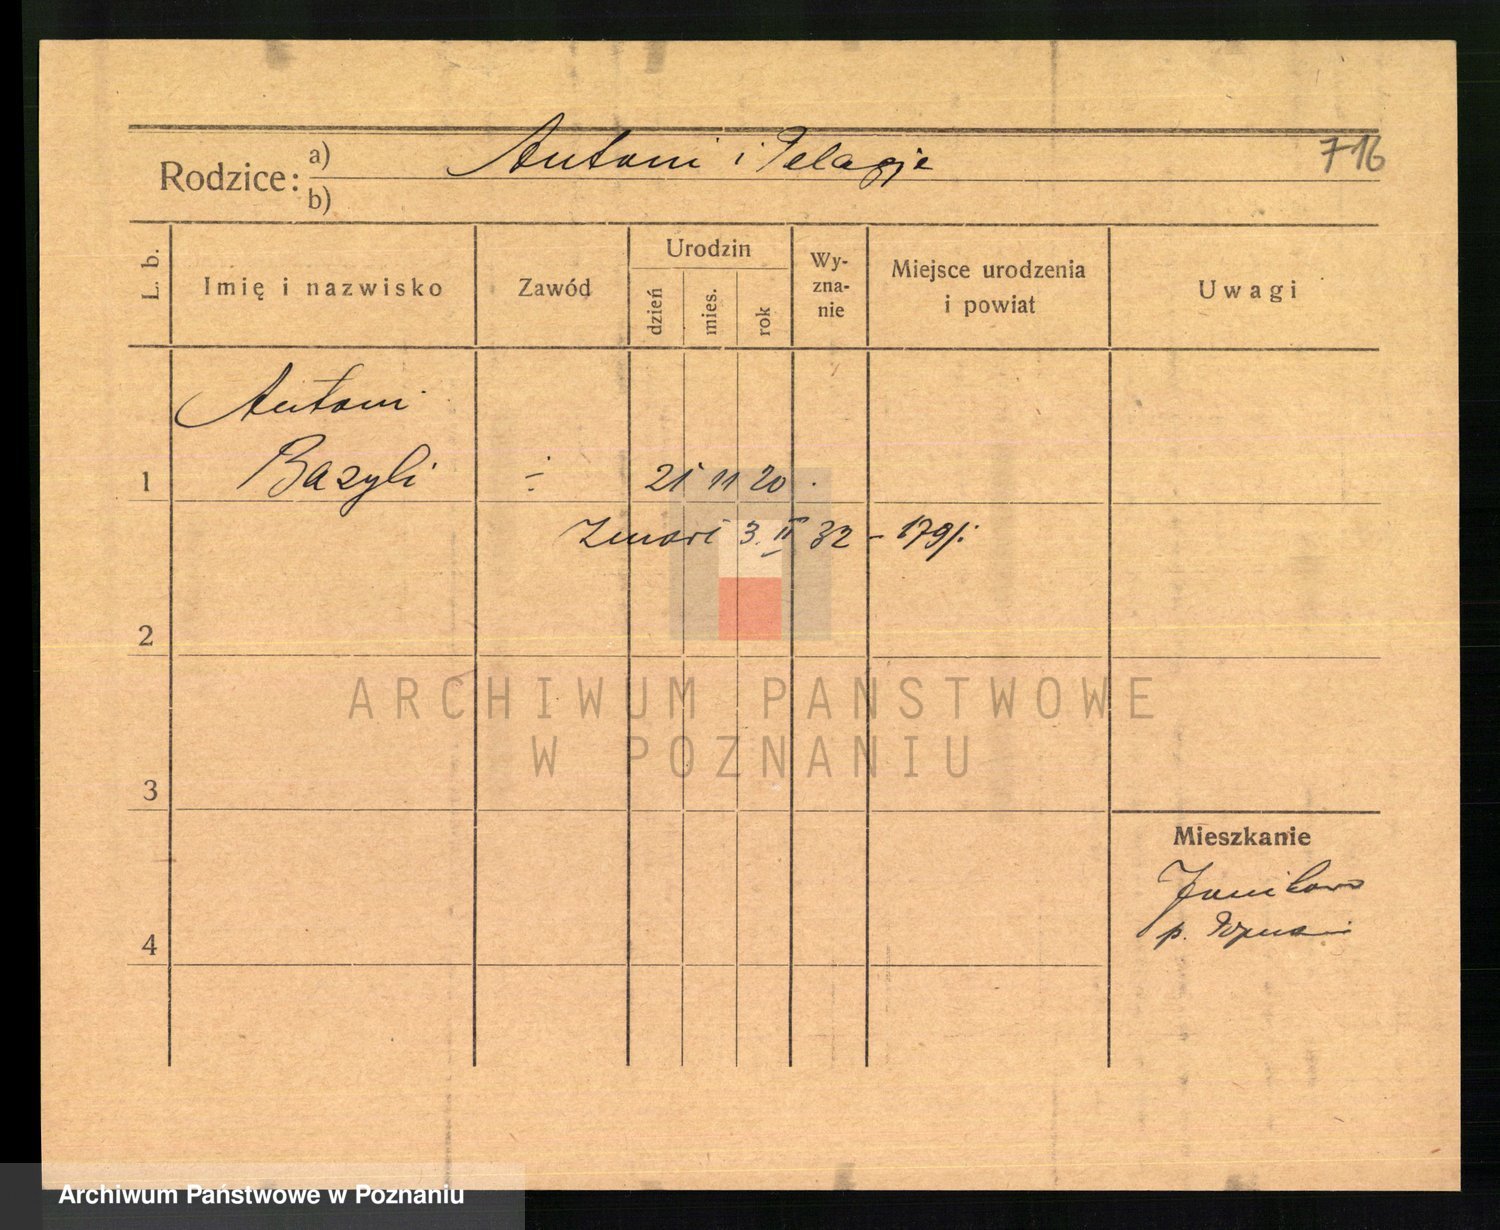 716
Rodzice: a) Antoni i Pelagje
b)
L. b.
Imię i nazwisko
Zawód
Urodzin
dzień
mies.
rok
Wy-
zna-
nie
Miejsce urodzenia
i powiat
Uwagi
Antoni
1 Bazyli ÷ 21 11 20 .
Zmarł 3. II 32 - 179/.
2
ARCHIWUM PAŃSTWOWE
W POZNANIU
3
Mieszkanie
Janikowo
p.
4
Archiwum Państwowe w Poznaniu